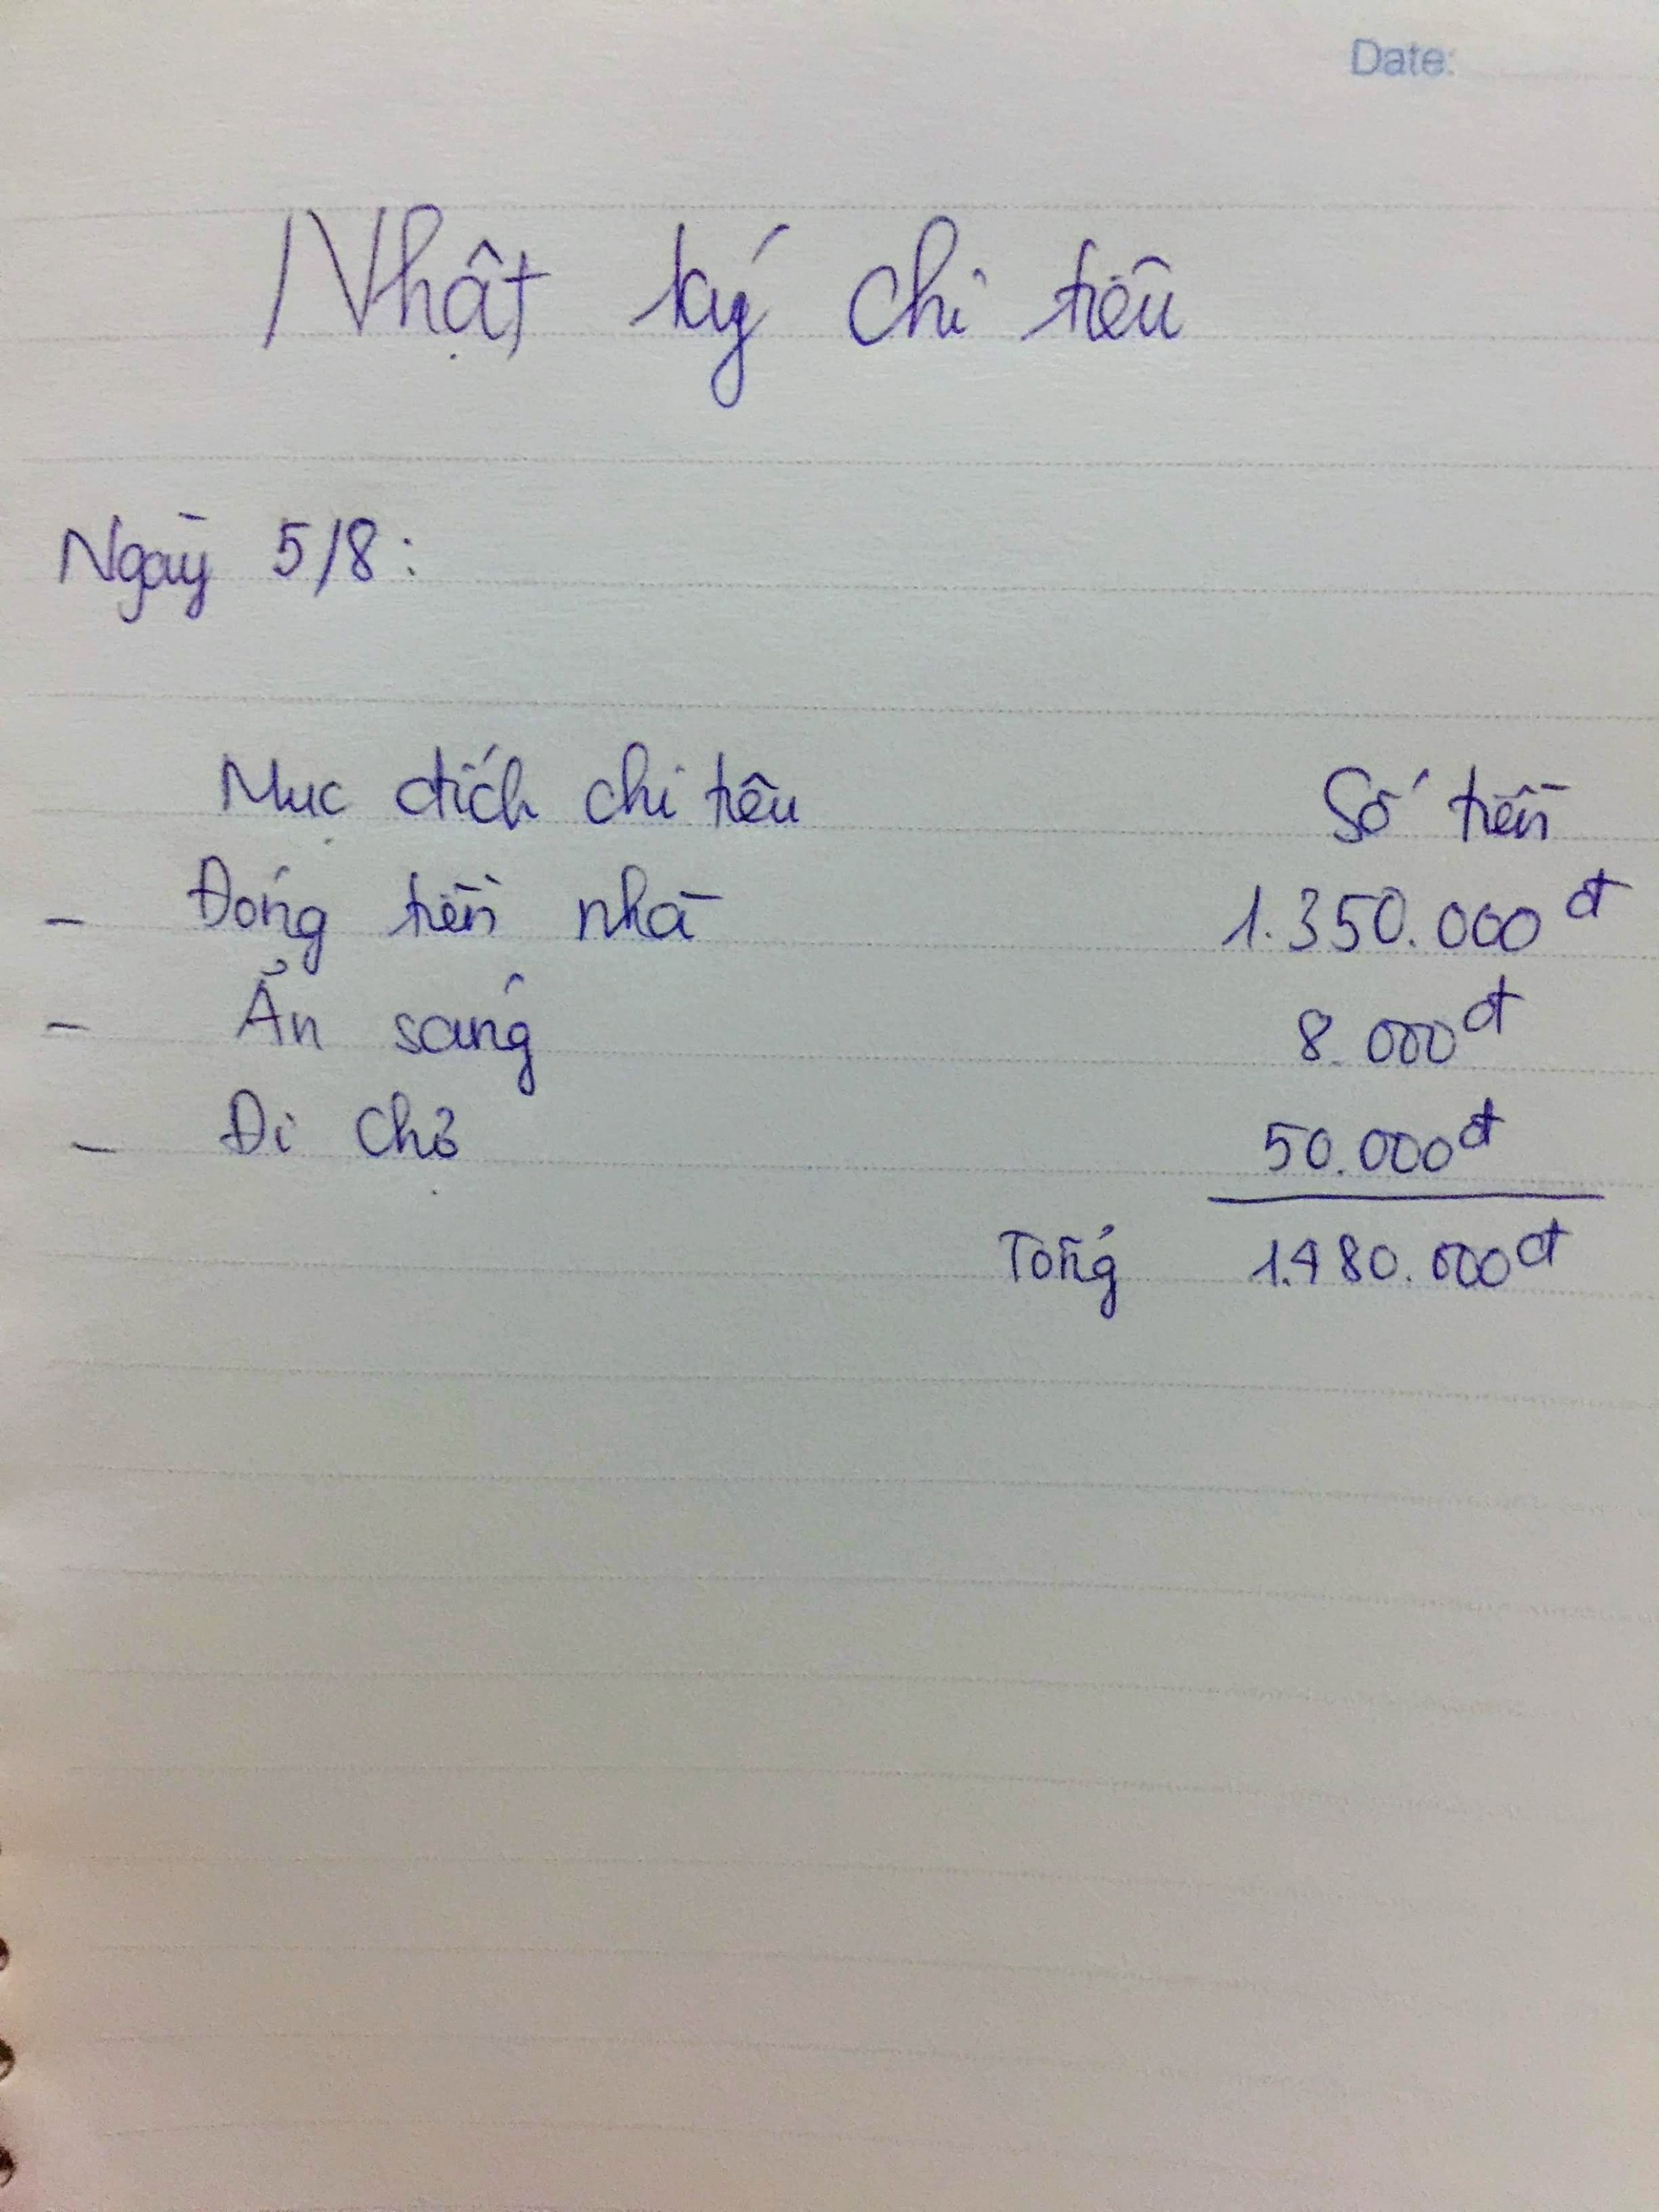 Date:
Nhật ký chi tiêu
Ngày 5/8:
Mục đích chi tiêu Số tiền
- Đóng tiền nhà 1.350.000đ
- Ăn sáng 8.000đ
- Đi chợ 50.000đ
Tổng 1.480.000đ